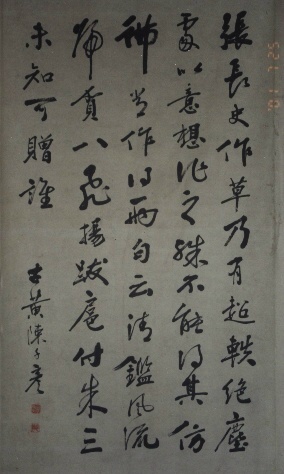 張長史作草乃有超軼絕塵
處以意想作之殊不能得其仿
彿嘗作得兩句云清鑑風流
歸賀八飛揚跋扈付朱三
未知可贈誰
古黃陳
'01 7 25